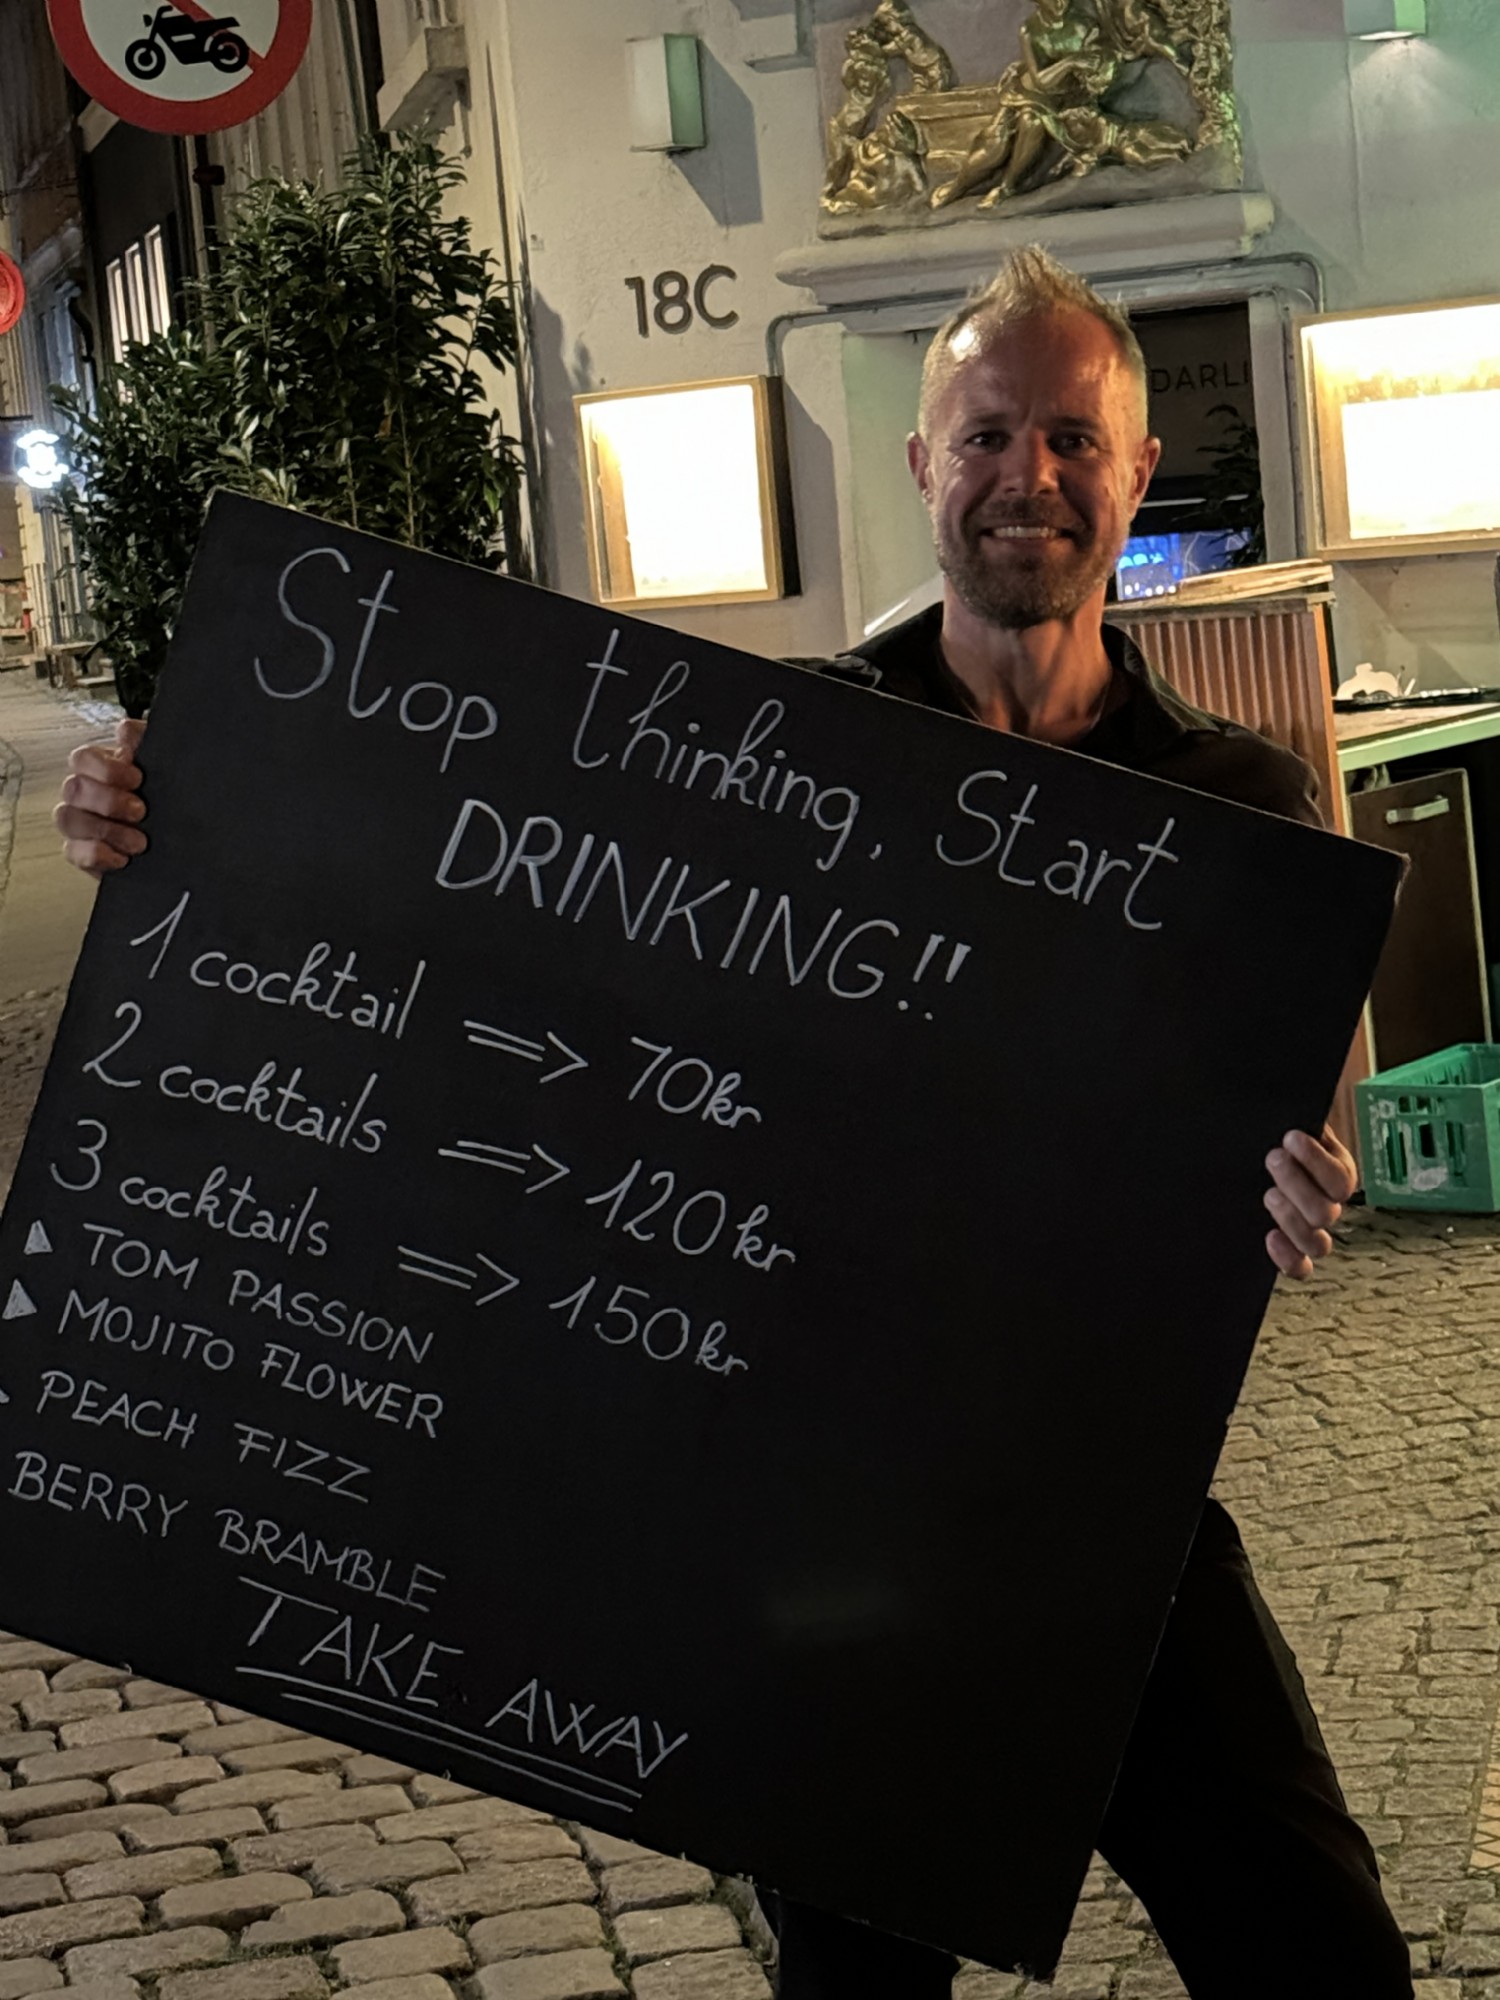 18C
DARLI
Stop thinking, Start
DRINKING!!
1 cocktail => 70kr
2 cocktails => 120kr
3 cocktails => 150kr
▶ TOM PASSION
▶ MOJITO FLOWER
PEACH FIZZ
BERRY BRAMBLE
TAKE AWAY